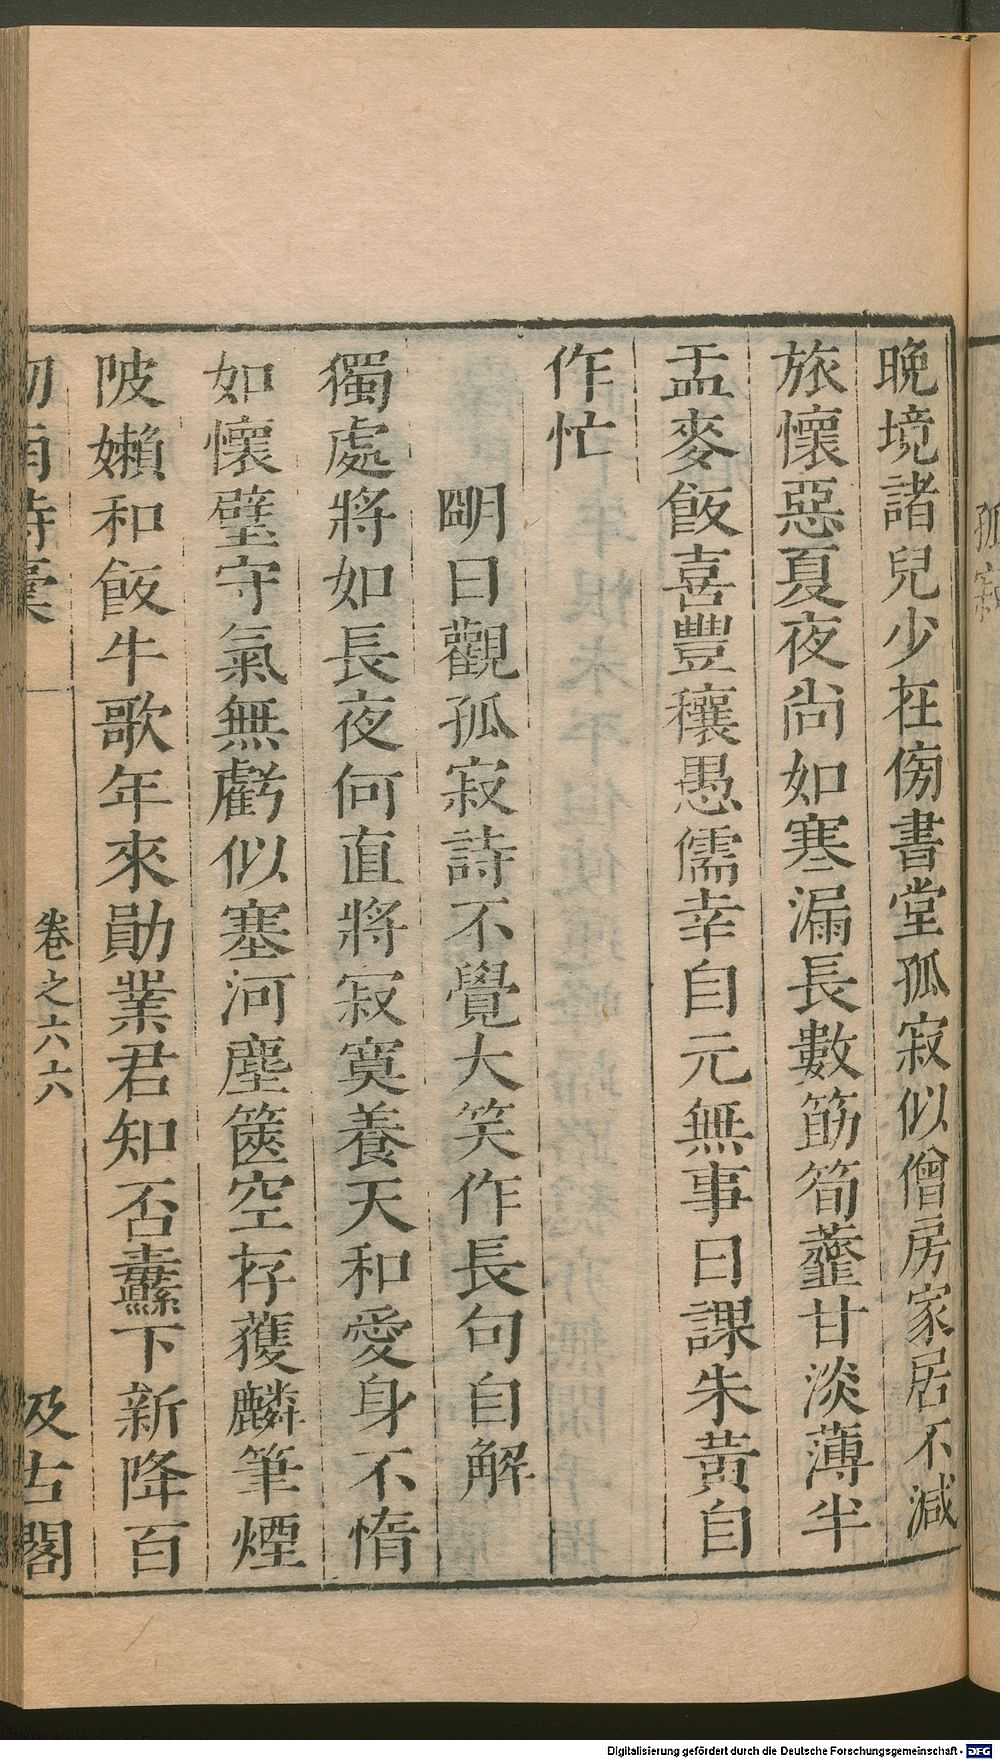 孤寂
晚境諸兒少在傍書堂孤寂似僧房家居不減
旅懷惡夏夜尚如寒漏長數筯筍虀甘淡薄半
盂麥飯喜豐穰愚儒幸自元無事日課朱黃自
作忙
明日觀孤寂詩不覺大笑作長句自解
獨處將如長夜何直將寂寞養天和愛身不惰
如懷璧守氣無虧似塞河塵篋空存獲麟筆煙
陂嬾和飯牛歌年來勛業君知否纛下新降百
劒南詩稾
卷之六六
汲古閣
Digitalisierung gefördert durch die Deutsche Forschungsgemeinschaft - DFG